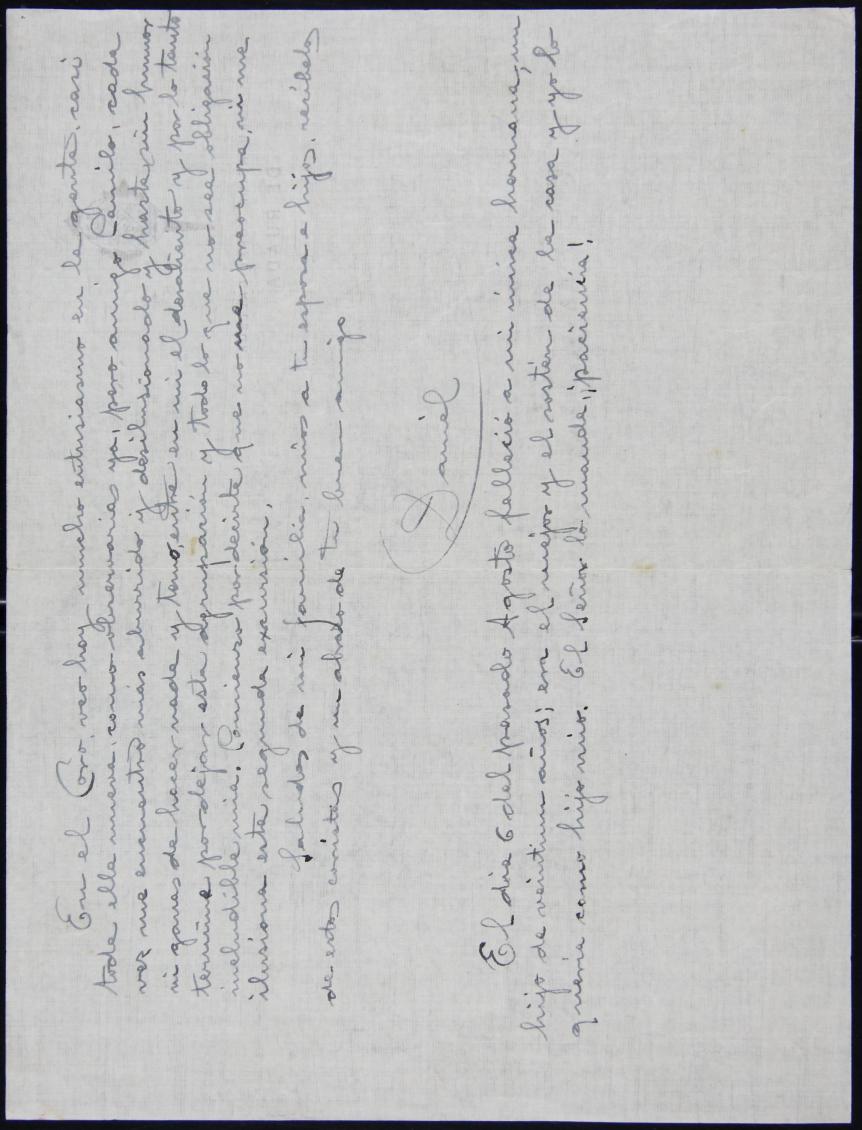 En el Coro, veo hay mucho entusiasmo en la gente, casi
toda ella nueva, como observarias ya; pero amigo Camilo, cada
vez me encuentro más aburrido y desilusionado y hasta sin humor
ni ganas de hacer nada y temo, entre en mi el desaliento y por lo tanto
termine por dejar esta agrupación y todo lo que no sea obligación
ineludible mia. Comienzo por decirte que no me preocupa, ni me
ilusiona esta segunda excursión.
Saludos de mi familia, mios a tu esposa e hijos, recibelos
de estos coristas y un abrazo de tu buen amigo
Daniel
El dia 6 del pasado Agosto fallecio a mi unica hermana, un
hijo de veintiun años; era el mejor y el sostén de la casa y yo lo
queria como hijo mio. El Señor lo manda, ¡paciencia!